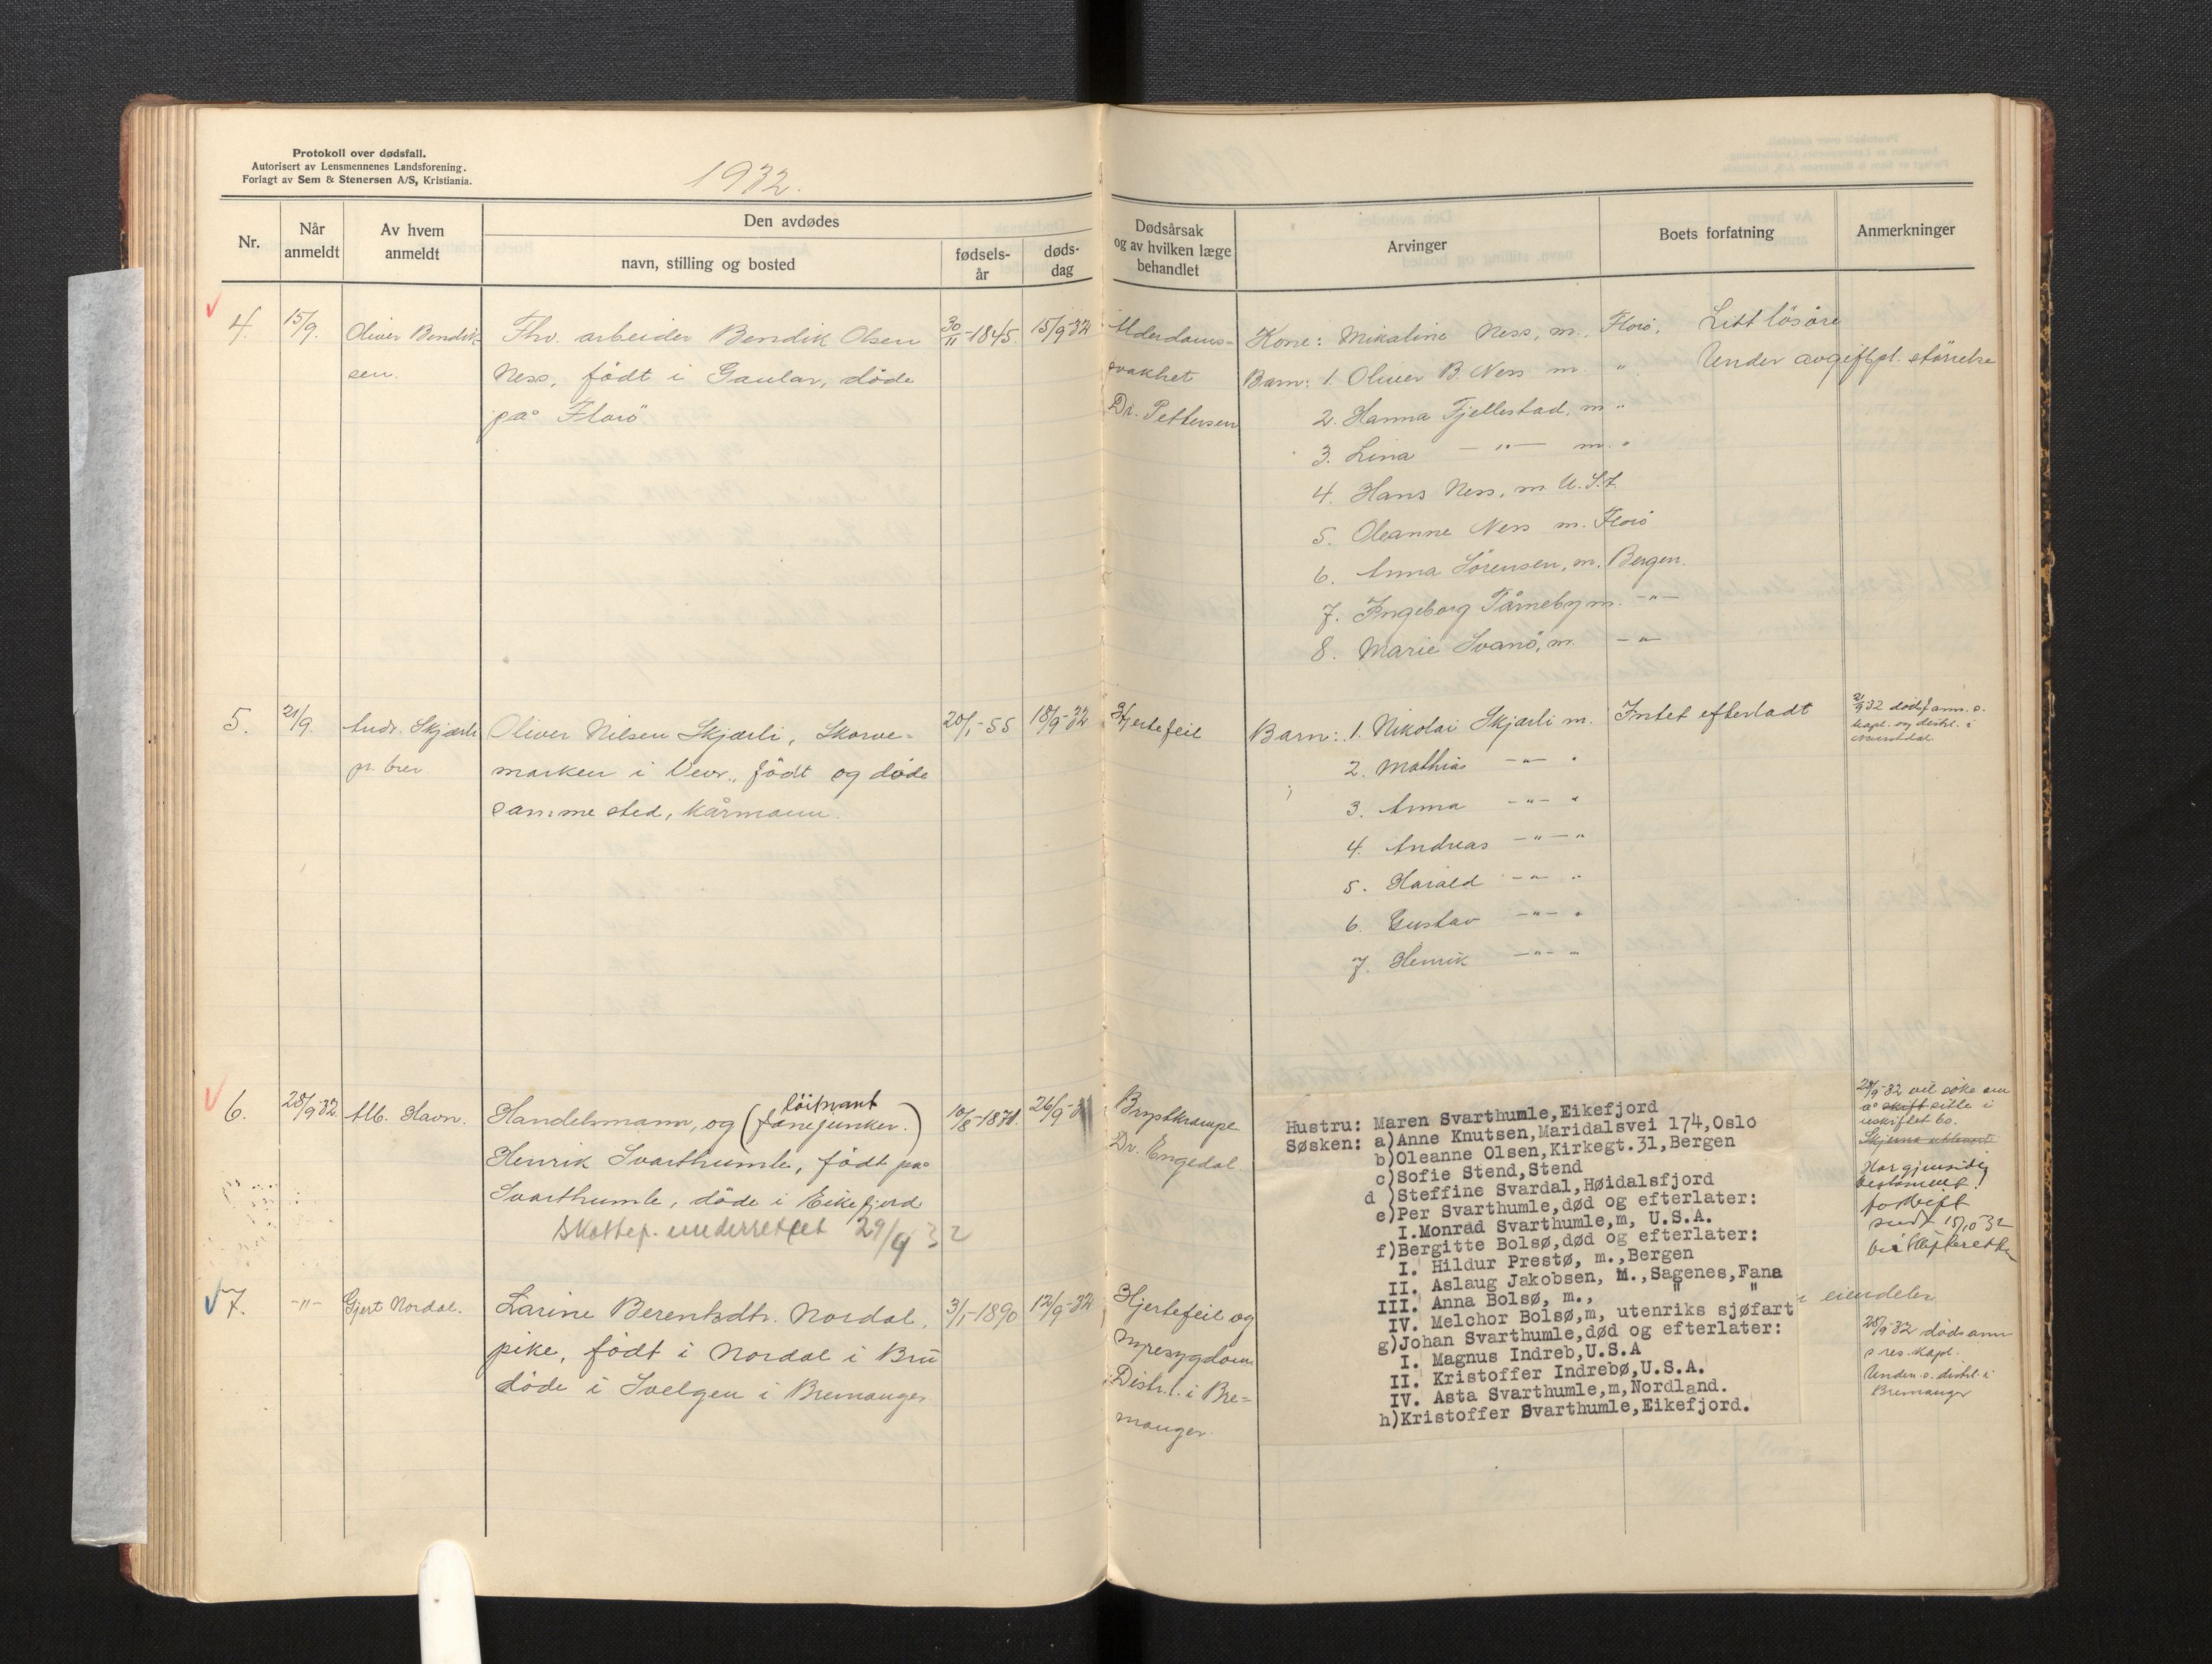 Protokoll over dødsfall.
Autorisert av Lensmennenes Landsforening.
Forlagt av Sem & Stenersen A/S, Kristiania.
1932.
Nr.
Når anmeldt
Av hvem anmeldt
Den avdødes
navn, stilling og bosted
fødsels-
år
døds-
dag
Dødsårsak
og av hvilken læge
behandlet
Arvinger
Boets forfatning
Anmerkninger
4. 15/9. Oliver Bendik- Fhv. arbeider Bendik Olsen 30/11-1845. 15/9-32
sen. Ness, født i Gaular, døde
på Florø
Alderdoms-
svakhet
Dr. Pettersen
Kone: Mikaline Ness, m., Florø.
Barn: 1. Oliver B. Ness m. "
2. Hanna Fjellestad, m. "
3. Lina —"— m. "
4. Hans Ness, m. U.S.A.
5. Oleanne Ness m. Florø
6. Anna Sørensen, m. Bergen.
7. Ingeborg Tårneby m. -"-
8. Marie Svanø, m. -"-
Litt løsøre
Under avgiftpl. størrelse
5. 21/9. Andr. Skjærli Oliver Nilsen Skjærli, Skorve- 20/1-55 18/9-32
pr. brev marken i Vevr., født og døde
samme sted, kårmann.
Hjertefeil
Barn: 1. Nikolai Skjærli m.
2. Mathias -"- "
3. Anna -"- "
4. Andreas -"- "
5. Harald -"- "
6. Gustav -"- "
7. Henrik -"- "
Intet efterladt
dødsf. anm. s.
kapl. og distrl. i
Naustdal.
6. 28/9-32. Alb. Havn. Handelsmann, og (fanejunker.) 10/8-1870. 26/9-3
løitnant
Henrik Svarthumle, født på
Svarthumle, døde i Eikefjord
Skattef. underrettet 29/9 32
Brystkrampe
Dr. Engedal.
Hustru: Maren Svarthumle,Eikefjord
Søsken: a)Anne Knutsen,Maridalsvei 174,Oslo
b)Oleanne Olsen,Kirkegt.31,Bergen
c)Sofie Stend,Stend
d )Steffine Svardal,Høidalsfjord
e)Per Svarthumle,død og efterlater:
I.Monrad Svarthumle,m, U.S.A.
f)Bergitte Bolsø,død og efterlater:
I. Hildur Prestø, m.,Bergen
II. Aslaug Jakobsen, M.,Sagenes,Fana
III. Anna Bolsø, m., " "
IV. Melchor Bolsø,m, utenriks sjøfart
g)Johan Svarthumle,død og efterlater:
I. Magnus Indreb,U.S.A
II. Kristoffer Indrebø,U.S.A.
IV. Asta Svarthumle,m,Nordland.
h)Kristoffer Svarthumle,Eikefjord.
28/9-32 vil søke om
å skift sitte i
uskiftet bo.
Har gjensidig
testament.
sendt 15/10 32
7. -"- Gjert Nordal. Larine Berentsdtr. Nordal, 3/1-1890 12/9-32
pike, født i Nordal i Bru
døde i Svelgen i Bremanger.
Hjertefeil og
nyresygdom
Distr.l. i Bre-
manger.
eiendeler
28/9 32 døds anm
s res. kapl.
Underr. s. distrl. i
Bremanger